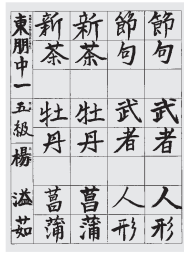 節句武者人形
節句武者人形
新茶牡丹菖蒲
新茶牡丹菖蒲
東朋中一五級楊溢茹